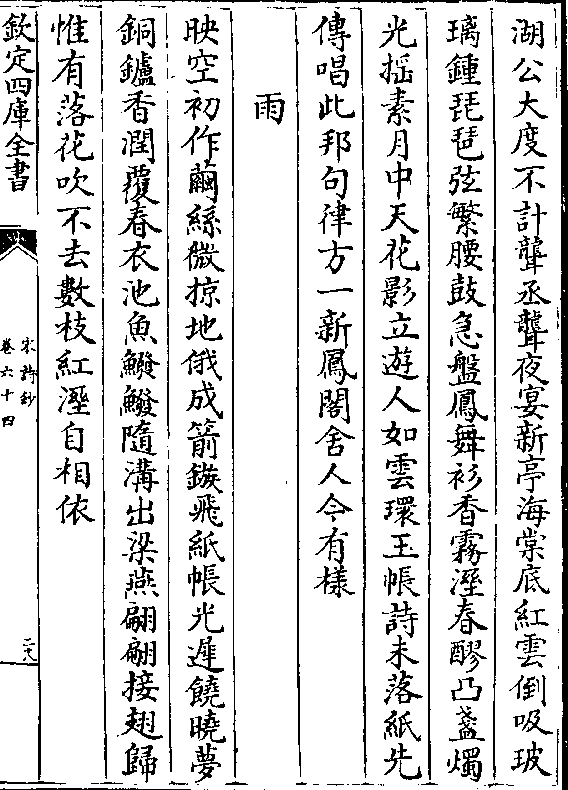 湖公大度不計聾丞聾夜宴新亭海棠底紅雲倒吸玻
璃鍾琵琶弦繁腰鼓急盤鳳舞衫香霧溼春醪凸盞燭
光揺素月中天花影立遊人如雲環玉帳詩未落紙先
傳唱此邦句律方一新鳳閣舍人今有樣
雨
映空初作繭絲微掠地俄成箭鏃飛紙帳光遲饒曉夢
銅鑪香潤覆春衣池魚鱍鱍隨溝出梁燕翩翩接翅歸
惟有落花吹不去數枝紅溼自相依
欽定四庫全書
宋詩鈔
卷六十四
二六